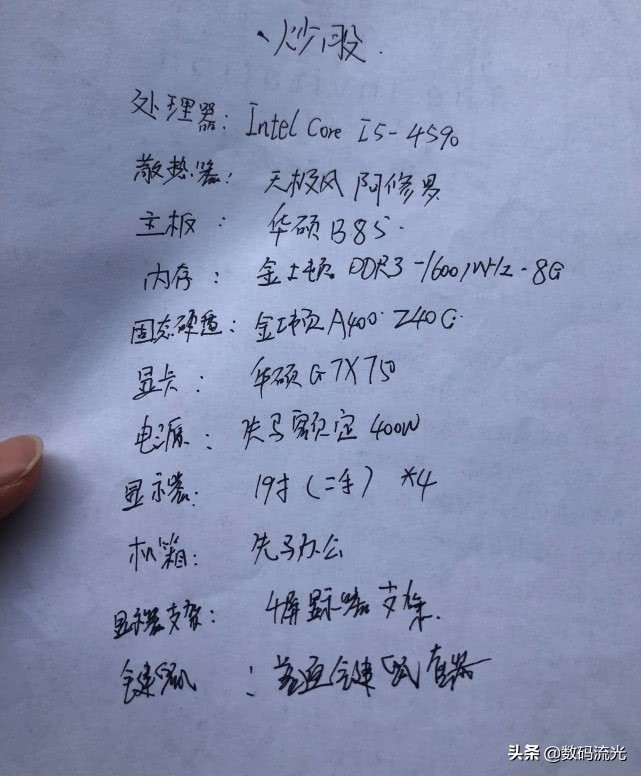 炒股
处理器: Intel Core I5-4590
散热器: 天极风 阿修罗
主板: 华硕B85
内存: 金士顿 DDR3-1600MHz-8G
固态硬盘: 金士顿A400 240G
显卡: 华硕GTX750
电源: 先马额定400W
显示器: 19寸(二手) *4
机箱: 先马办公
显示器支架: 4屏显示器支架
键鼠: 普通键鼠
头条 @数码流光